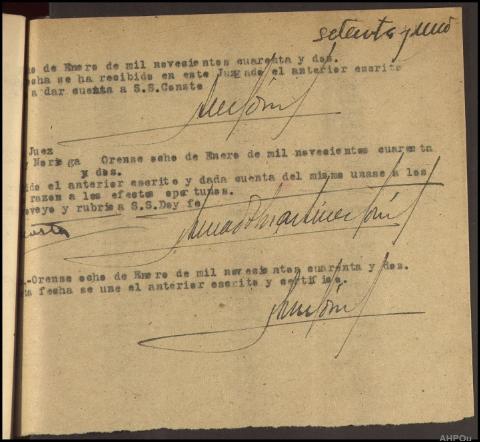 setenta y uno
ho de Enero de mil novecientos cuarenta y dos.
echa se ha recibido en este Juzgado el anterior escrito
a dar cuenta a S.S. Conste
Juez
Noriega Orense ocho de Enero de mil novecientos cuarenta
y dos.
ido el anterior escrito y dada cuenta del mismo unase a los
razon a los efectos oportunos.
oveyo y rubrica S.S. Doy fe
.-Orense ocho de Enero de mil novecientos cuarenta y dos.
ta fecha se une el anterior escrito y certifico.
AHPOu